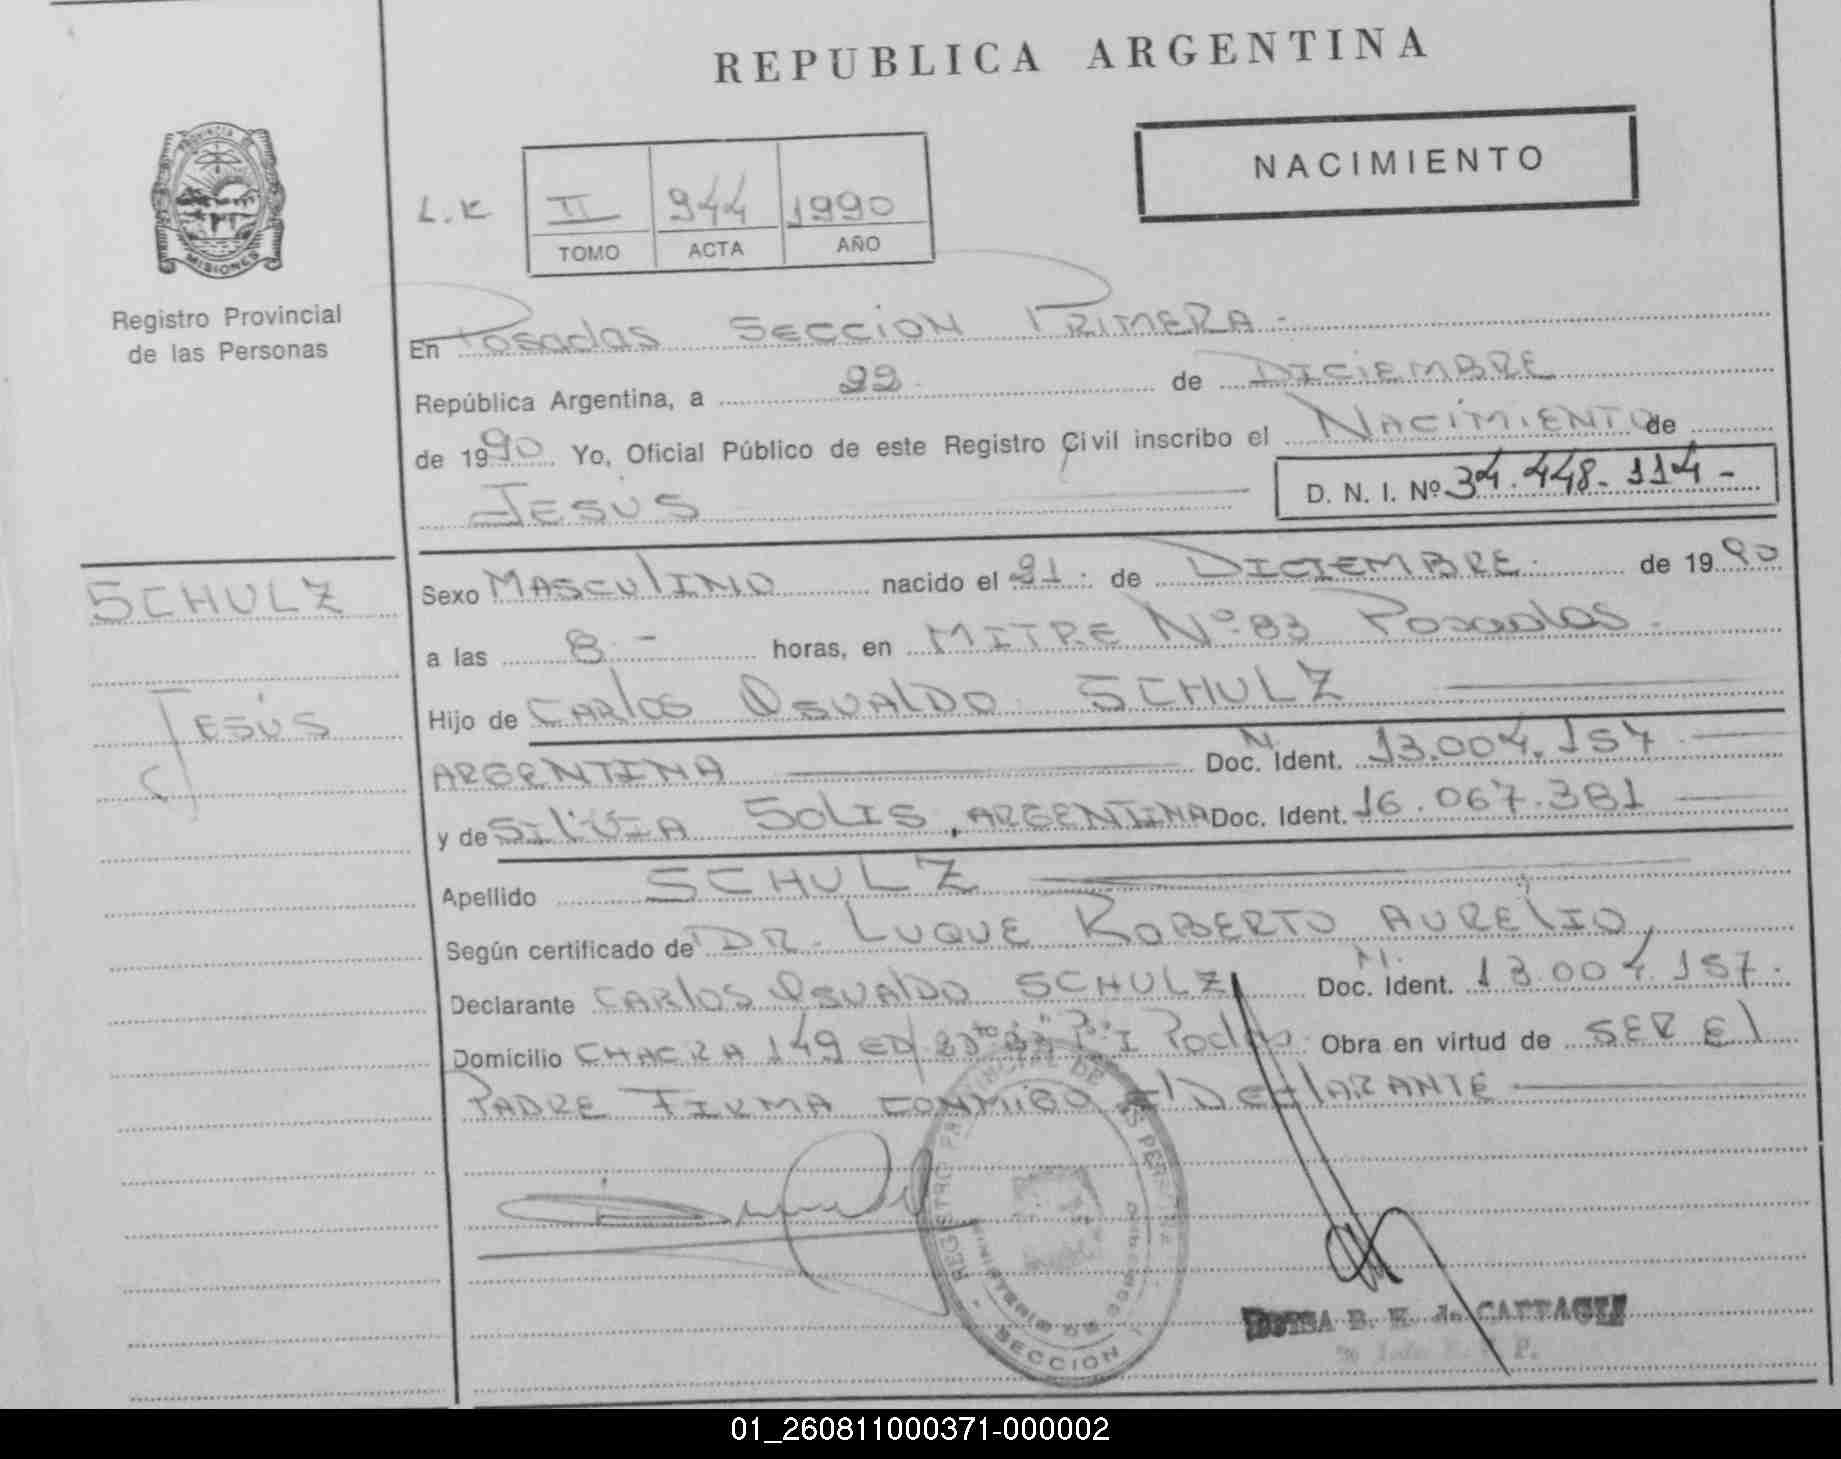 REPUBLICA ARGENTINA
NACIMIENTO
PROVINCIA DE
MISIONES
Registro Provincial
de las Personas
L.K II 944 1990
TOMO ACTA AÑO
En Posadas SECCION PRIMERA.-
República Argentina, a 22. de DICIEMBRE
de 1990 Yo, Oficial Público de este Registro Civil inscribo el NACIMIENTO de
JESÚS D. N. I. Nº 34.448.114-
SCHULZ
JESÚS
Sexo MASCULINO nacido el 21. de DICIEMBRE. de 1990
a las 8.- horas, en MITRE Nº 83 Posadas.
Hijo de CARLOS OSVALDO SCHULZ
ARGENTINA N. Doc. Ident. 13.004.157
y de SILVIA SOLIS, ARGENTINA Doc. Ident. 16.067.381
Apellido SCHULZ
Según certificado de DR. LUQUE ROBERTO AURELIO,
Declarante CARLOS OSVALDO SCHULZ N. Doc. Ident. 13.004.157.
Domicilio CHACRA 149 ED Obra en virtud de SER El
PADRE FIRMA CONMIGO El DEClARANTE
REGISTRO PROVINCIAL DE
MINISTERIO DE
SECCION
B. E. de